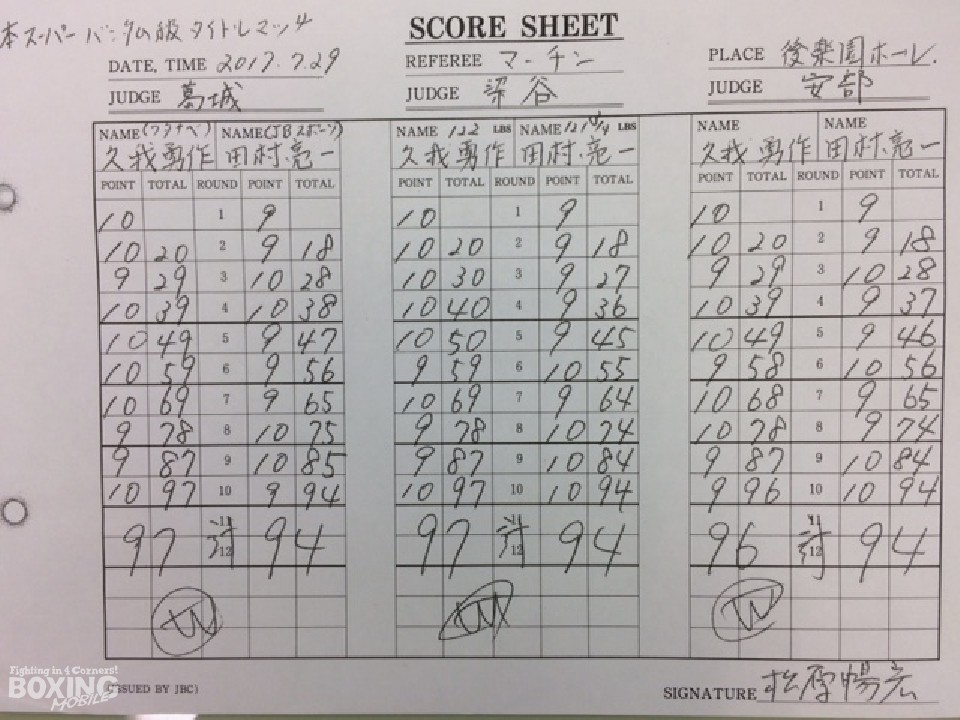 本スーパーバンタム級タイトルマッチ
SCORE SHEET
DATE, TIME 2017.7.29
REFEREE マーチン
PLACE 後楽園ホール.
JUDGE 葛城
JUDGE 深谷
JUDGE 安部
NAME (ワタナベ) NAME (JBスポーツ) NAME 122 LBS NAME 121 3/4 LBS NAME NAME
久我勇作 田村亮一 久我勇作 田村亮一 久我勇作 田村亮一
POINT TOTAL ROUND POINT TOTAL POINT TOTAL ROUND POINT TOTAL POINT TOTAL ROUND POINT TOTAL
10 1 9 10 1 9 10 1 9
10 20 2 9 18 10 20 2 9 18 10 20 2 9 18
9 29 3 10 28 10 30 3 9 27 9 29 3 10 28
10 39 4 10 38 10 40 4 9 36 10 39 4 9 37
10 49 5 9 47 10 50 5 9 45 10 49 5 9 46
10 59 6 9 56 9 59 6 10 55 9 58 6 10 56
10 69 7 9 65 10 69 7 9 64 10 68 7 9 65
9 78 8 10 75 9 78 8 10 74 10 78 8 9 74
9 87 9 10 85 9 87 9 10 84 9 87 9 10 84
10 97 10 9 94 10 97 10 10 94 9 96 10 10 94
11 11 11
97 計 94 97 計 94 96 計 94
12 12 12
W W W
Fighting in 4 Corners!
BOXING
MOBILE
(ISSUED BY JBC)
SIGNATURE 松原暢宏